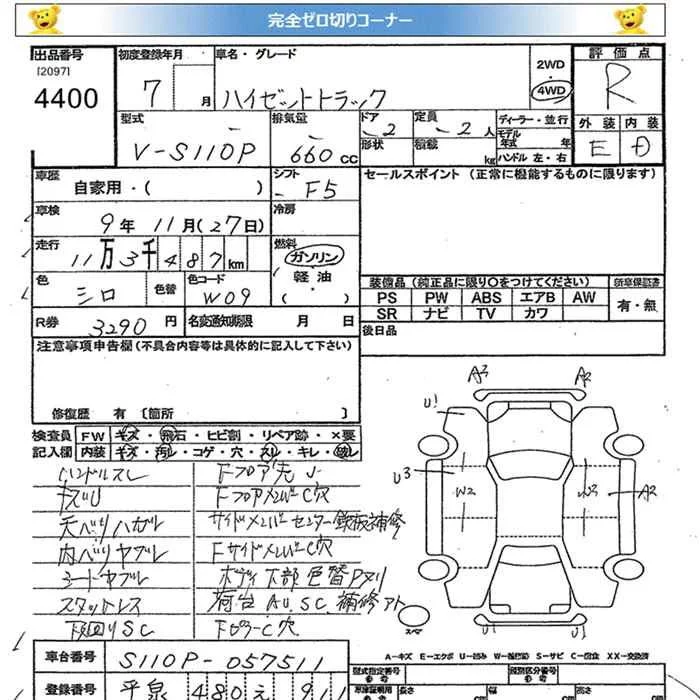 完全ゼロ切りコーナー
出品番号
[2097]
4400
初度登録年月
7 月
車名・グレード
ハイゼットトラック
2WD
・
4WD
評価点
R
型式
V-S110P
排気量
660 cc
ドア
2
定員
2 人
形状
積載
kg
ディーラー・並行
モデル年式 年
ハンドル 左・右
外装 内装
E D
車歴
自家用・( )
シフト
F5
セールスポイント (正常に機能するものに限ります)
車検
9年 11月(27日)
冷房
走行
11万3千487km
燃料
ガソリン
軽油
・( )
色
シロ
色替
色コード
W09
装備品 (純正品に限り○をつけてください)
新車保証書
PS PW ABS エアB AW
有・無
SR ナビ TV カワ
R券
3290 円
名変通知期限 月 日
後日品
注意事項申告欄 (不具合内容等は具体的に記入して下さい)
修復歴 有 [箇所 ]
検査員 FW キズ・飛石・ヒビ割・リペア跡・×要
記入欄 内装 キズ・汚レ・コゲ・穴・スレ・キレ・破レ
ハンドルスレ
天ベリハガレ
内ベリヤブレ
シートヤブレ
スタットレス
下回りSC
FフロアメンバーC穴
サイドメンバーセンター鉄板補修
FサイドメンバーC穴
ボディ下部色替Pヌリ
荷台AU.SC.補修アト
A3 A2
U1
U3
W2 W3
A2
スペア
U1 U1
A-キズ E-エクボ U-凹み W-補修跡 S-サビ C-腐食 XX-交換済
車台番号
S110P-057511
登録番号
平泉 480 え 911
型式指定番号
類別区分番号
長さ 幅 高さ